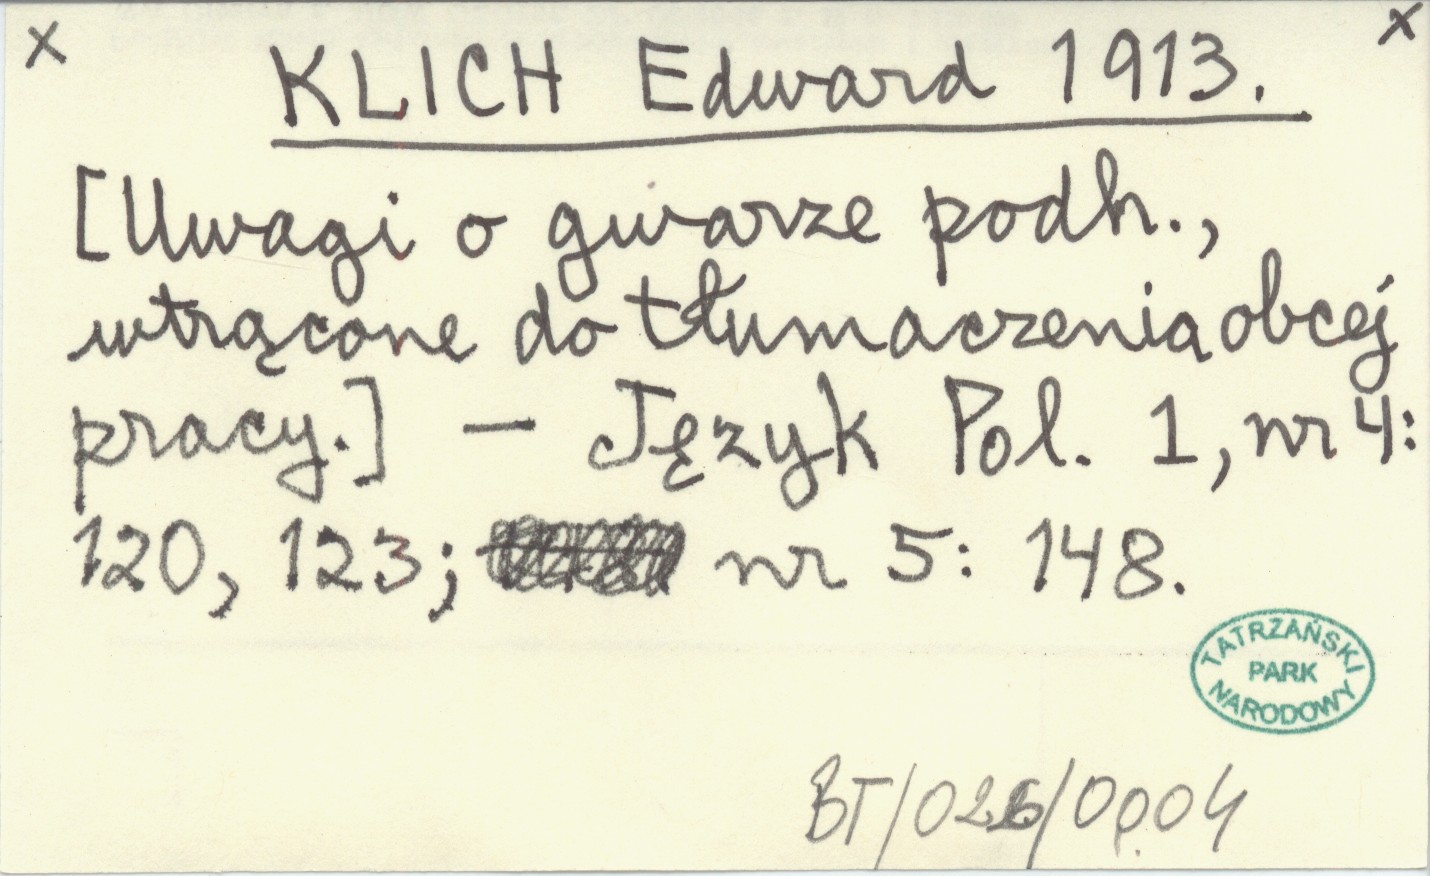 x KLICH Edward 1913. x
[Uwagi o gwarze podh.,
wtrącone do tłumaczenia obcej
pracy.] — Język Pol. 1, nr 4:
120, 123; nr 5: 148.
TATRZAŃSKI
PARK
NARODOWY